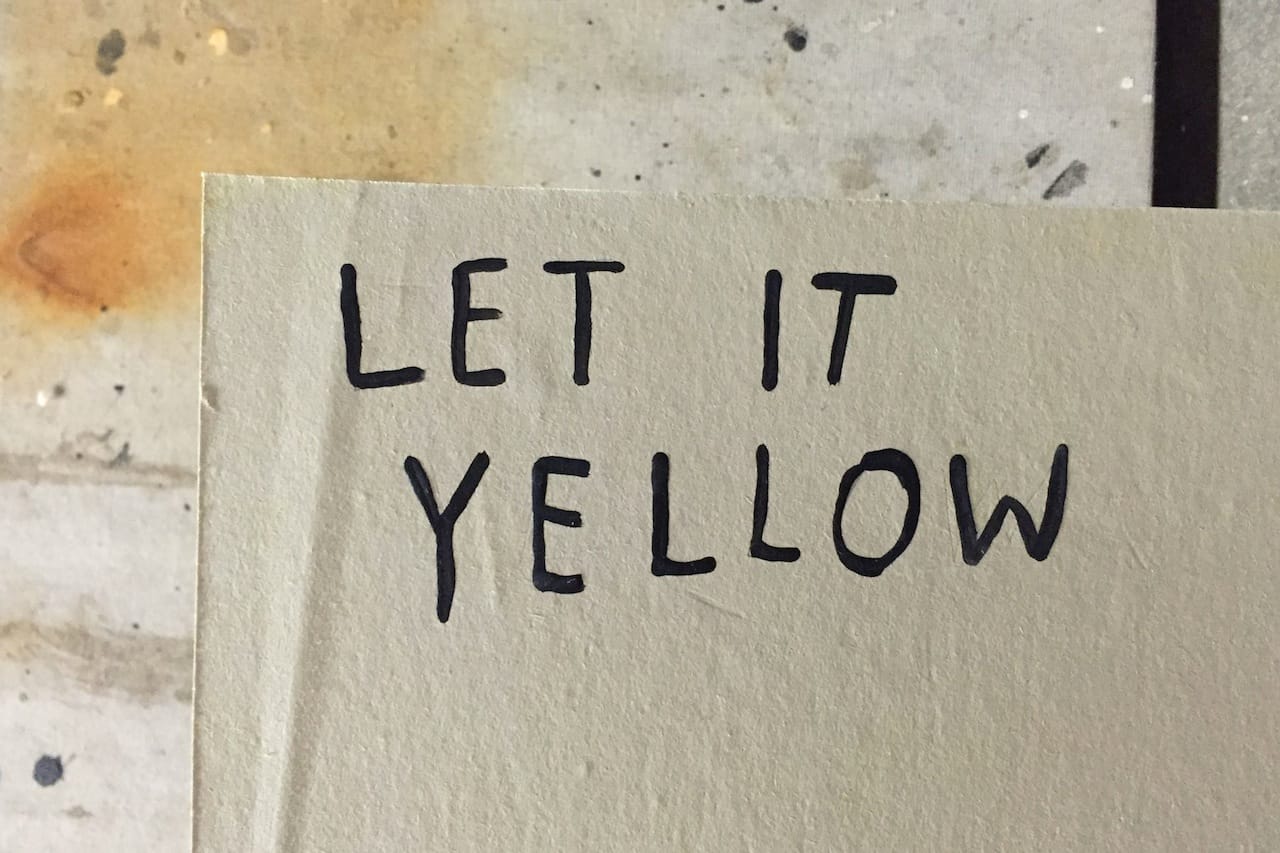 LET IT
YELLOW